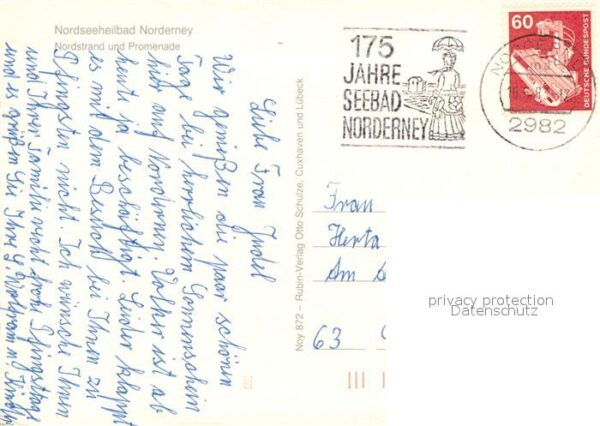 Nordseeheilbad Norderney
Nordstrand und Promenade
175
JAHRE
SEEBAD
NORDERNEY
60
DEUTSCHE BUNDESPOST
2982
Noy 872 – Rubin-Verlag Otto Schulze, Cuxhaven und Lübeck
Liebe Frau
Wir genießen die paar schönen
Tage bei herrlichem Sonnenschein
hier auf Norderney. Volker ist ab
heute ja beschäftigt. Leider klappt
es mit dem Besuch bei Ihnen zu
Pfingsten nicht. Ich wünsche Ihnen
und Ihrer Familie recht frohe Pfingsttage
und es grüßen Sie Ihre
Frau
Herta
Am
63
privacy protection
Datenschutz